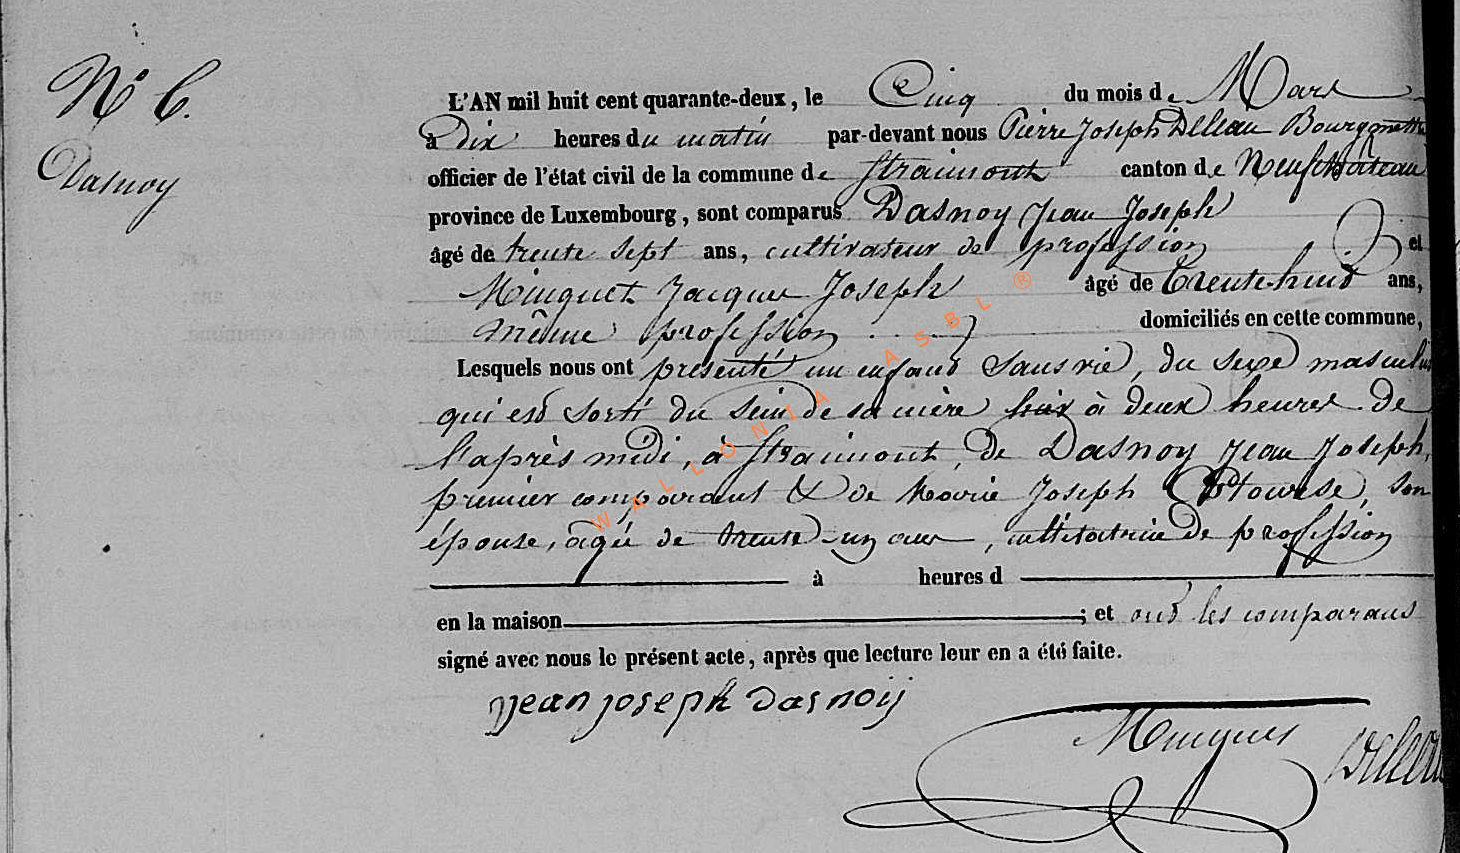 N° 6.
Dasnoy
L'AN mil huit cent quarante-deux, le Cinq du mois de Mars
à Dix heures du matin par-devant nous Pierre Joseph Delleau Bourgmestre
officier de l'état civil de la commune de Straimont canton de Neufchâteau
province de Luxembourg, sont comparus Dasnoy Jean Joseph
âgé de trente sept ans, cultivateur de profession et
Minguet Jacques Joseph âgé de Trente-huit ans,
même profession domiciliés en cette commune,
Lesquels nous ont présenté un enfant sans vie, du sexe masculin
qui est sorti du sein de sa mère hier à deux heures de
l'après midi, à Straimont, de Dasnoy Jean Joseph,
premier comparant & de Marie Joseph son
épouse, agée de trente-un ans, cultivatrice de profession
à heures d
en la maison ; et ont les comparans
signé avec nous le présent acte, après que lecture leur en a été faite.
jean joseph Dasnoij
Minguet Delleau
WALLONIA ASBL ®